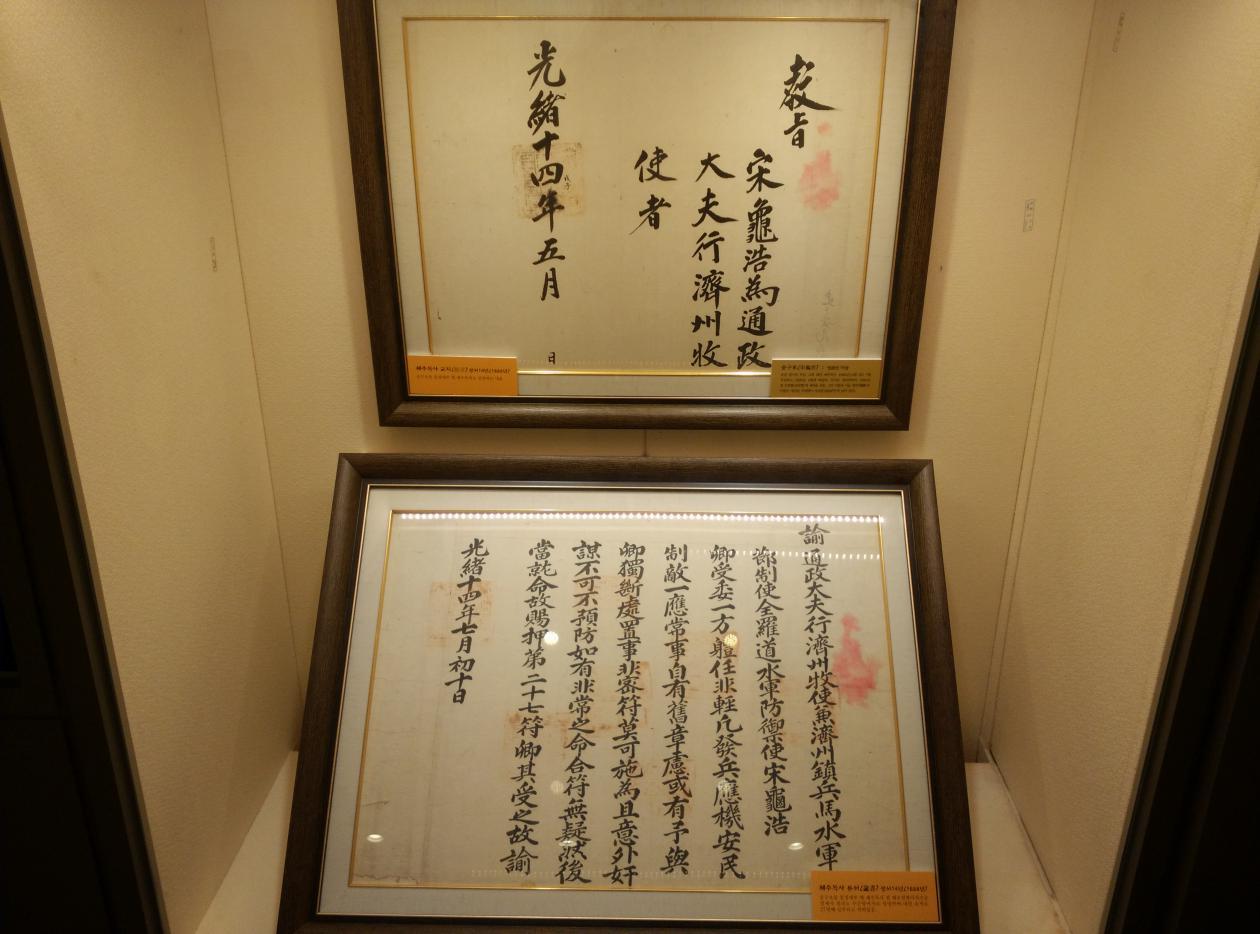 教旨
宋龜浩為通政
大夫行濟州牧
使者
光緒十四年五月
日
제주목사 교지
광서14년(1888년)
諭 通政大夫行濟州牧使兼濟州鎭兵馬水軍
節制使全羅道水軍防禦使宋龜浩
卿受委一方軆任非輕凡發兵應機安民
制敵一應常事自有舊章慮或有予與
卿獨斷處置事非密符莫可施為且意外奸
謀不可不預防如有非常之命合符無疑然後
當就命故賜押第二十七符卿其受之故諭
光緒十四年七月初十日
제주목사 유서(諭書) 광서14년(1888년)